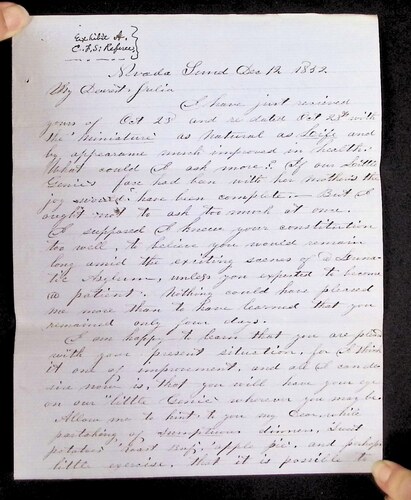 Exhibit A.
C.F.S. Referee
Nevada Dec 12 1852.
My Dearest Julia
I have just recieved
yours of Oct 23d and re dated Oct 28th with
the "miniature" as natural as Life and
by appearance much improved in health.
What could I ask more? If our Little
Genie's face had ben with her mothers the
joy would have been complete — But I
ought not to ask too much at once.
I supposed I knew your constitution
too well, to believe you would remain
long amid the exciting scenes of a Luna-
tic Asylum, unless you expected to become
a patient. Nothing could have pleased
me more than to have learned that you
remained only four days.
I am happy to learn that you are
with your present situation, for I think
it one of improvement, and all I can de-
sire now is, that you will have your eye
on our "little Genie" wherever you may be.
Allow me to hint to you my Dear, while
partaking of sumptuous dinners, sweet
potatoes roast apple pie, and perhaps
little exercise, that it is possible to